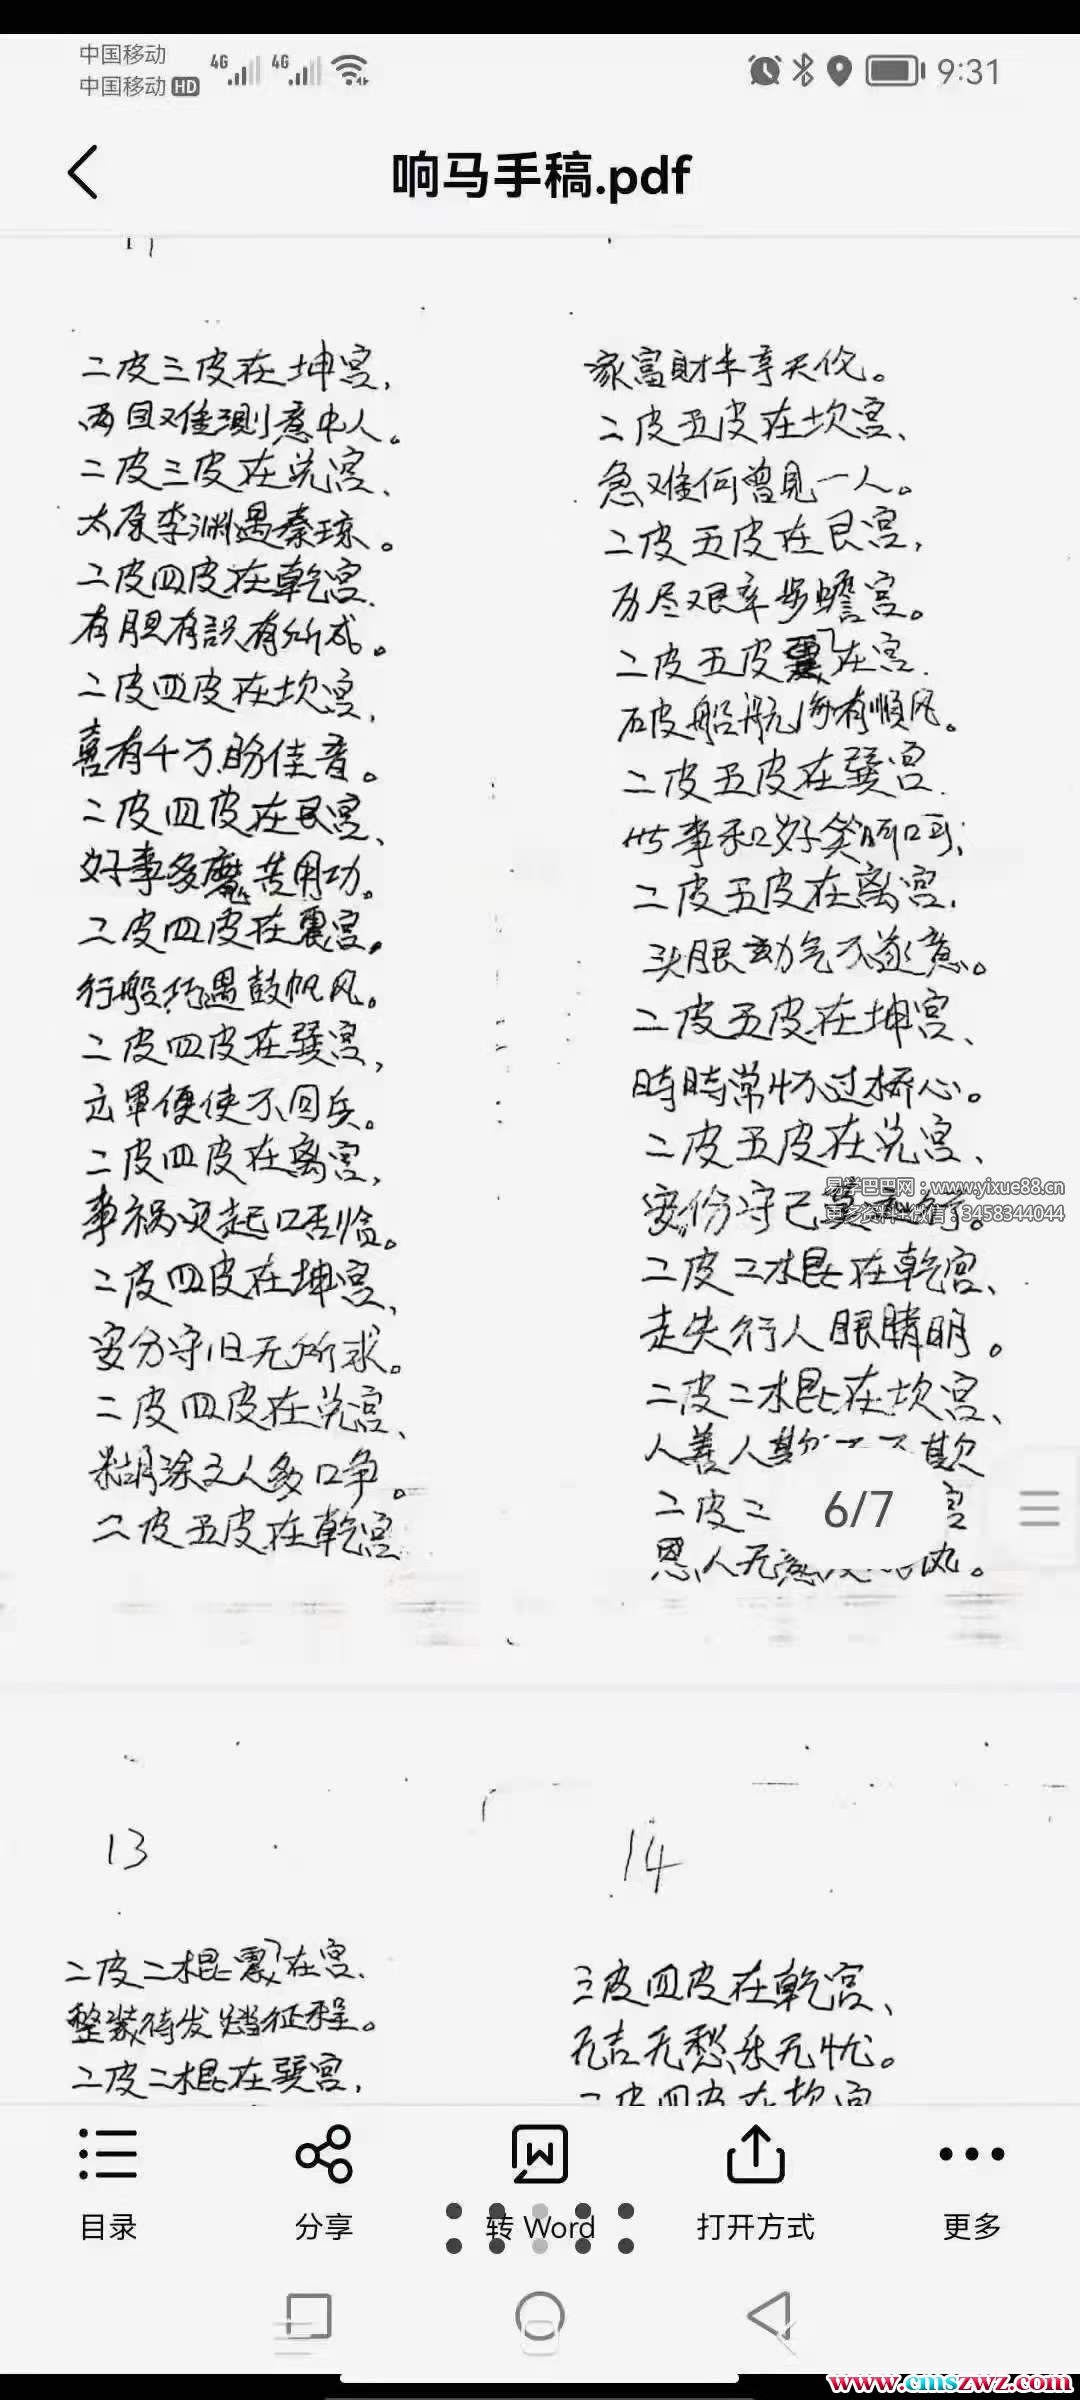 中国移动
中国移动 HD
4G 4G
9:31
响马手稿.pdf
二皮三皮在坤宫,
两目难测意中人。
二皮三皮在兑宫、
太原李渊遇秦琼。
二皮四皮在乾宫.
有胆有識有所成。
二皮四皮在坎宫,
喜有千万盼佳音。
二皮四皮在艮宫、
好事多魔苦用功。
二皮四皮在震宫,
行般巧遇鼓帆风。
二皮四皮在巽宫,
立軍便使不回兵。
二皮四皮在离宫,
事祸灾起口舌临。
二皮四皮在坤宫,
安分守旧无所求。
二皮四皮在兑宫、
糊涂之人多口争。
二皮五皮在乾宫
家富財丰享天伦。
二皮五皮在坎宫、
急难何曾見一人。
二皮五皮在艮宫,
历尽艰辛步蟾宫。
二皮五皮震在宫.
破船航海有順风。
二皮五皮在巽宫.
世事和好笑呵呵;
二皮五皮在离宫.
头眼动气不遂意。
二皮五皮在坤宫、
時時常怀过桥心。
二皮五皮在兑宫、
安份守己莫行。
二皮二木棍在乾宫、
走失行人眼睛明。
二皮二木棍在坎宫、
人善人欺天不欺
二皮二 宫
恩人无意
易学巴巴网：www.yixue88.cn
更多资料+微信：3458344044
6/7
13
14
二皮二木棍震在宫.
整装待发踏征程。
二皮二木棍在巽宫,
三皮四皮在乾宫、
无吉无愁乐无忧。
二皮四皮在坎宫
目录
分享
转 Word
打开方式
更多
www.cmszwz.com